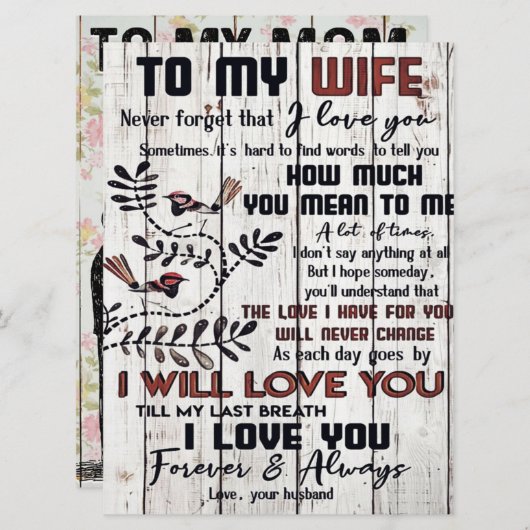 TO MY MOM
TO MY WIFE
Never forget that I love you
Sometimes, it's hard to find words to tell you
HOW MUCH
YOU MEAN TO ME
A lot of times,
I don't say anything at all
But I hope someday,
you'll understand that
THE LOVE I HAVE FOR YOU
WILL NEVER CHANGE
As each day goes by
I WILL LOVE YOU
TILL MY LAST BREATH
I LOVE YOU
Forever & Always
Love, your husband